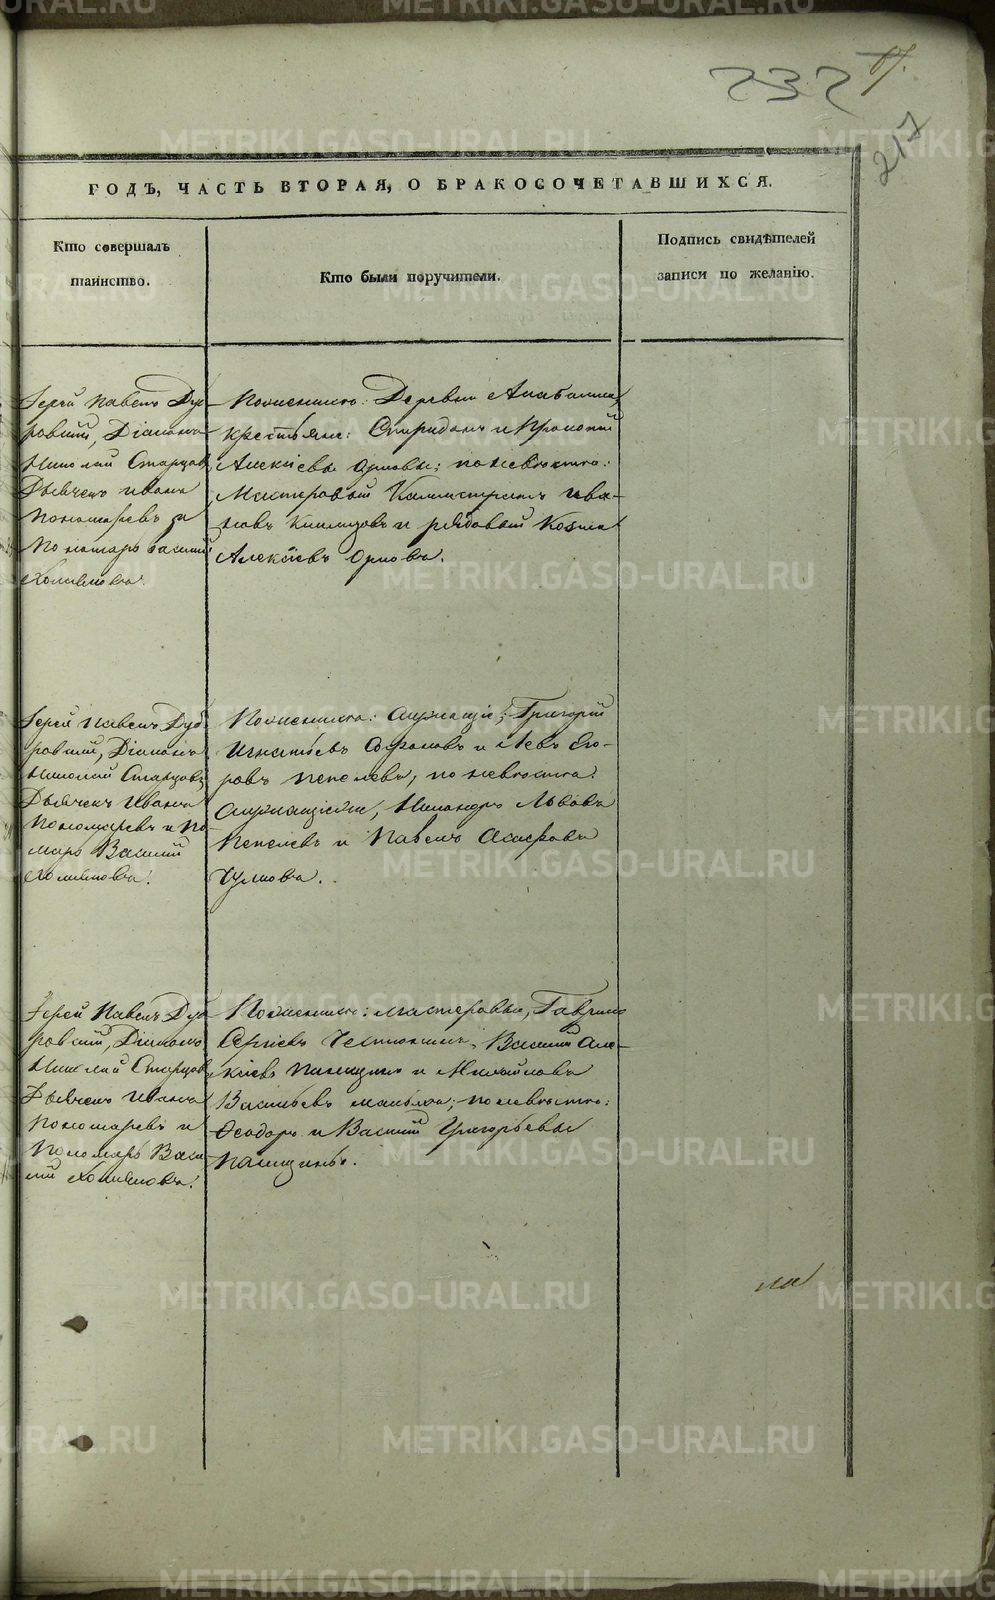 232
67.
217
ГОДЪ, ЧАСТЬ ВТОРАЯ, О БРАКОСОЧЕТАВШИХСЯ.
Кто совершалъ
таинство.
Кто были поручители.
Подпись свидѣтелей
записи по желанію.
Іерей Павелъ Дуб
ровскій, Діаконъ
Николай Старцовъ,
Дьячекъ Иванъ
Пономаревъ и
Пономарь Василій
Хомяковъ.
По женихѣ: Деревни
крестьяне: Спиридонъ и Прокопій
Алексѣевы Орловы; по невѣстѣ:
Мастеровый Каллистратъ Ива-
новъ и рядовый Козма
Алексѣевъ Орловъ.
Іерей Павелъ Дуб
ровскій, Діаконъ
Николай Старцовъ,
Дьячекъ Иванъ
Пономаревъ и По-
марь Василій
Хомяковъ.
По женихѣ: Григорій
Игнатьевъ и Левъ Его-
ровъ Пепелевъ, по невѣстѣ:
Никаноръ Львовъ
Пепелевъ и Павелъ
Іерей Павелъ Дуб
ровскій, Діаконъ
Николай Старцовъ,
Дьячекъ Иванъ
Пономаревъ и
Пономарь Васи
лій Хомяковъ.
По женихѣ: мастеровые, Гаврило
Сергѣевъ Василій Але-
ксѣевъ и Михайловъ
Васильевъ по невѣстѣ:
Ѳеодоръ и Василій Григорьевы
METRIKI.GASO-URAL.RU